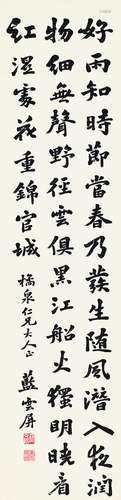 好雨知時節當春乃發生随風潛入夜潤
物細無聲野徑雲俱黑江船火獨明曉看
紅濕處花重錦官城
橘泉仁兄大人正
藍雲屏